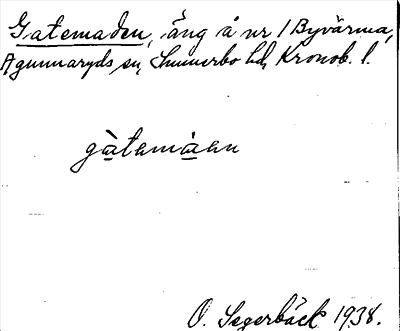 Gatemaden, äng å nr 1 Byvärma,
Agunnaryds sn, Sunnerbo hd, Kronob. l.
gàtemàen
O. Segerbäck 1938.